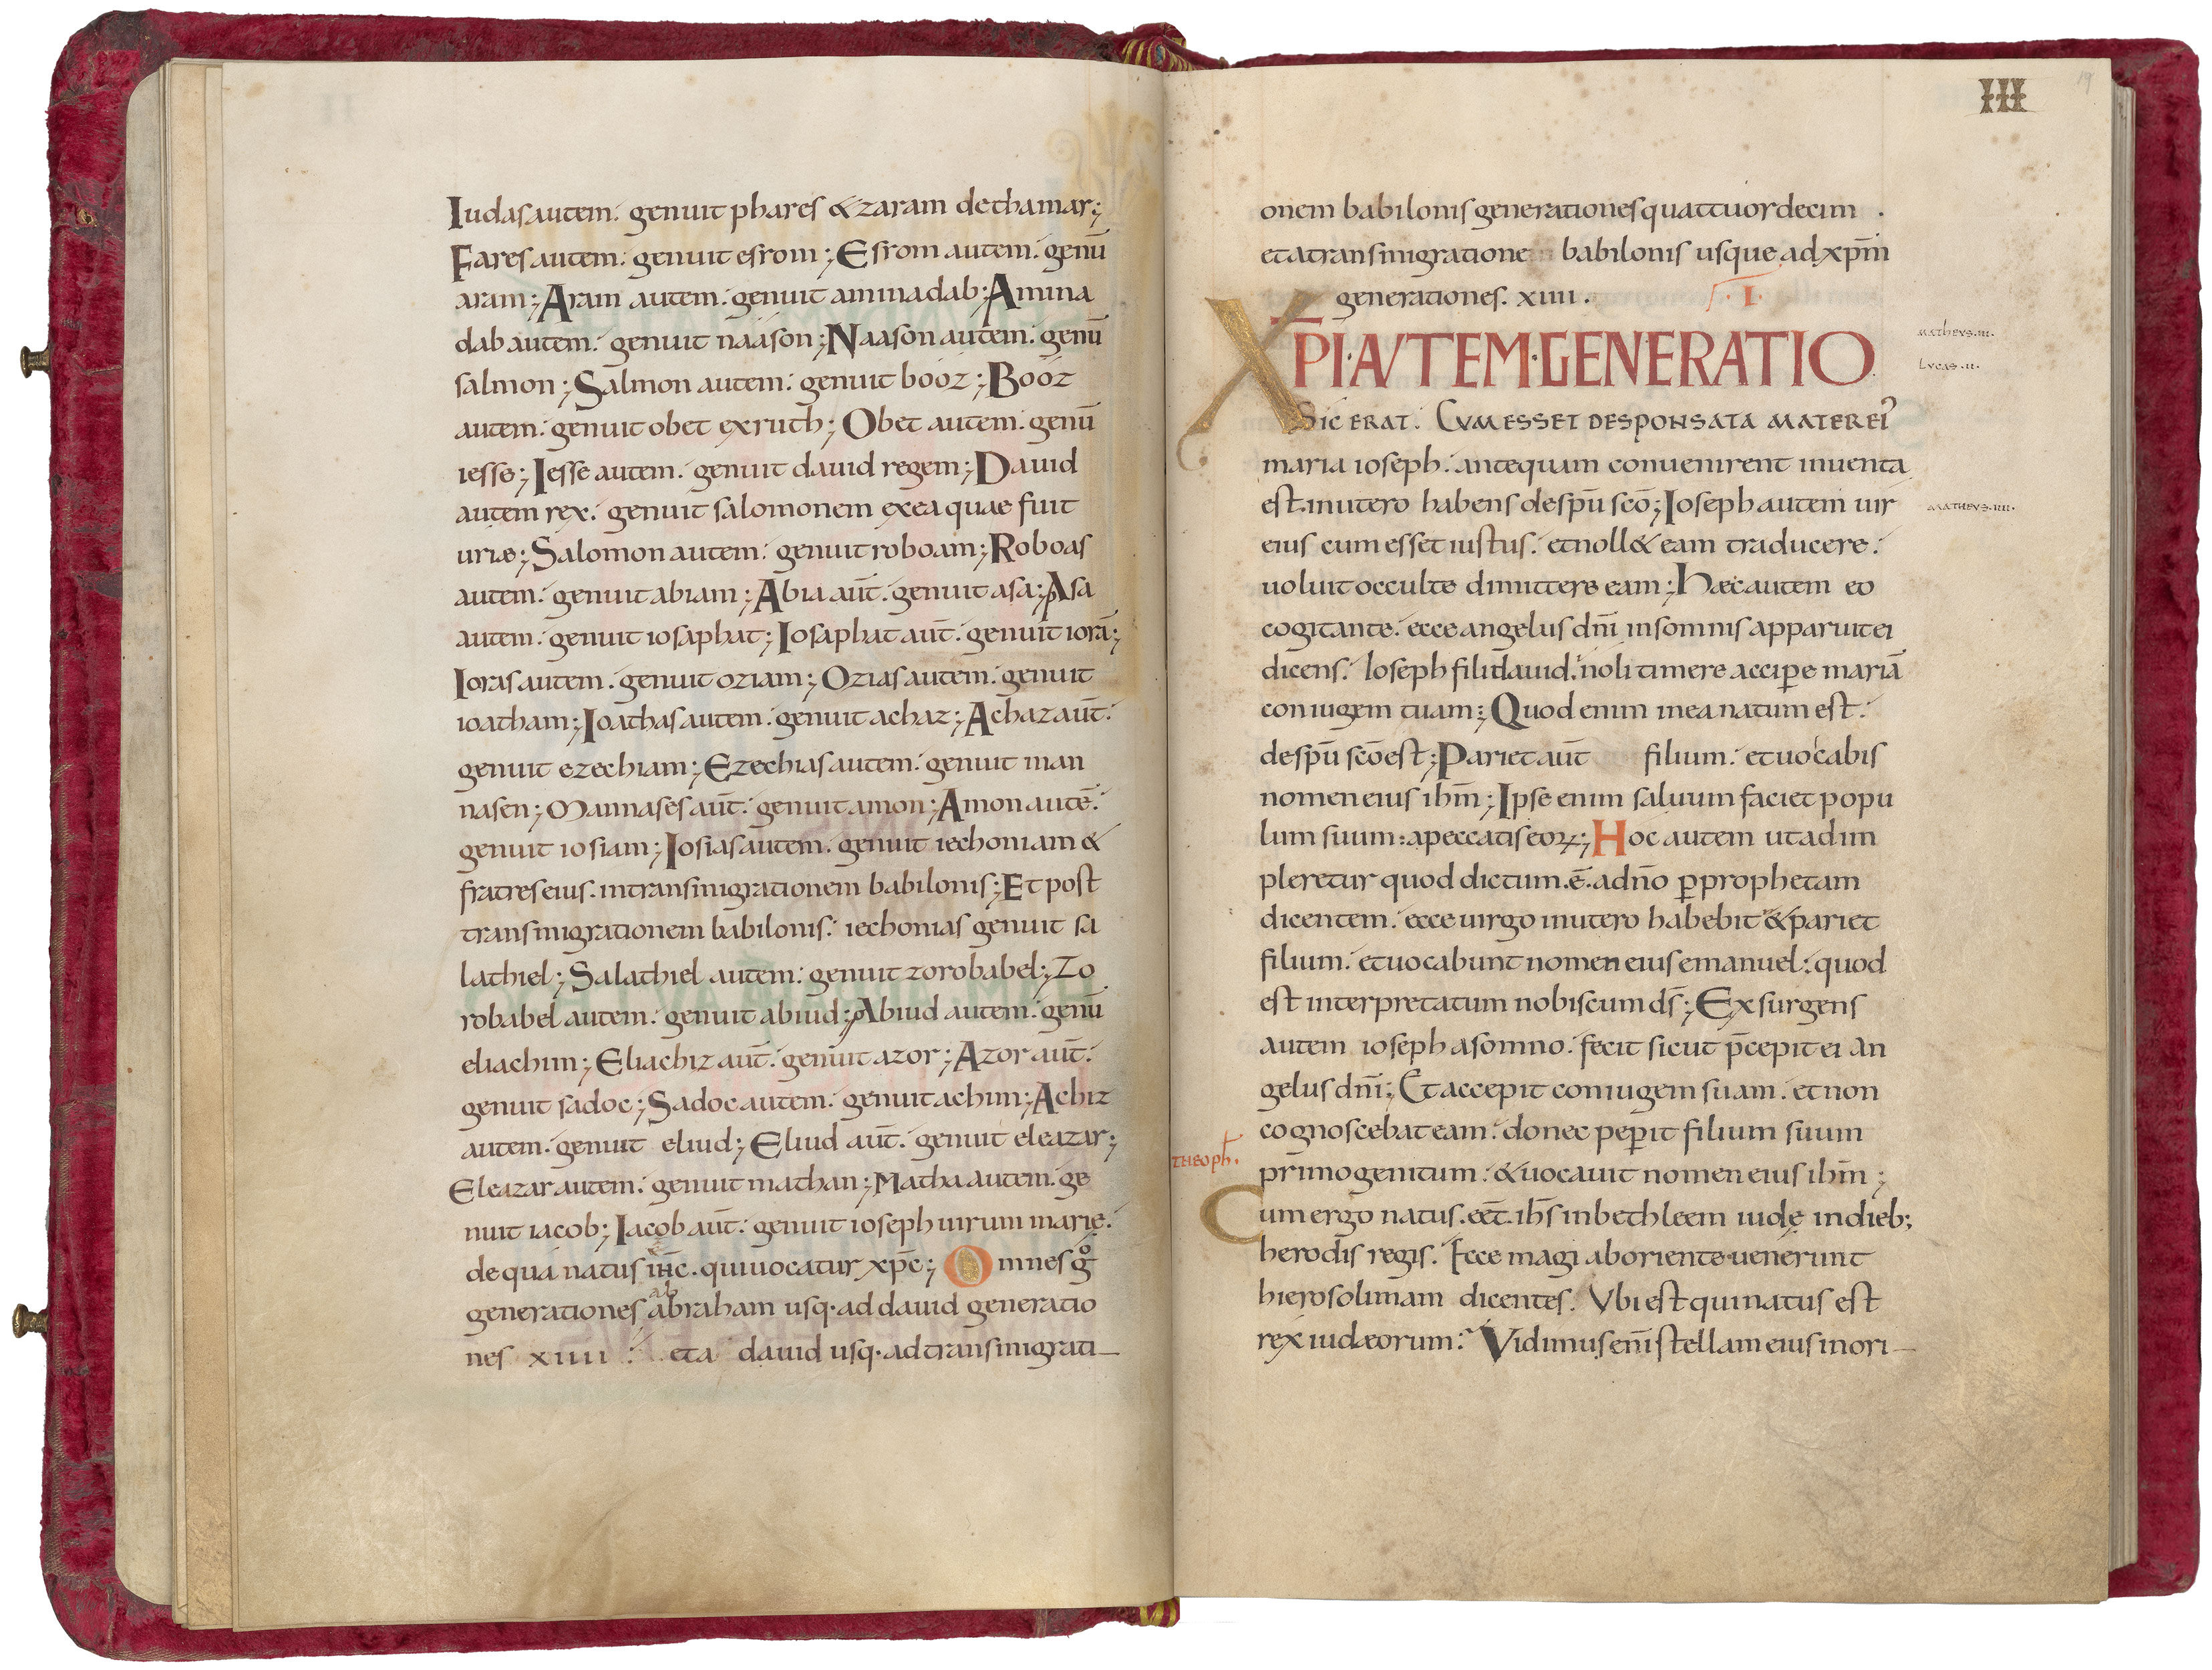 Iudas autem. genuit phares & zaram de thamar;
Fares autem. genuit esrom; Esrom autem. genū
aram; Aram autem. genuit aminadab; Amina
dab autem. genuit naason; Naason autem. genū
salmon; Salmon autem. genuit booz; Booz
autem. genuit obet ex ruth; Obet autem. genū
iesse; Iesse autem. genuit dauid regem; Dauid
autem rex. genuit salomonem ex ea quae fuit
uriae; Salomon autem. genuit roboam; Roboas
autem. genuit abiam; Abia aūt. genuit asa; Asa
autem. genuit iosaphat; Iosaphat aūt. genuit iorā;
Ioras autem. genuit oziam; Ozias autem. genuit
ioatham; Ioathas autem. genuit achaz; Achaz aūt.
genuit ezechiam; Ezechias autem. genuit man
nasen; Mannases aūt. genuit amon; Amon autē.
genuit iosiam; Iosias autem. genuit iechoniam &
fratres eius. in transmigrationem babilonis; Et post
transmigrationem babilonis. iechonias genuit sa
lathiel; Salathiel autem. genuit zorobabel; Zo
robabel autem. genuit abiud; Abiud autem. genū
eliachim; Eliachiz aūt. genuit azor; Azor aūt.
genuit sadoc; Sadoc autem. genuit achim; Achiz
autem. genuit eliud; Eliud aūt. genuit eleazar;
Eleazar autem. genuit mathan; Matha autem. ge
nuit iacob; Iacob aūt. genuit ioseph uirum marię.
de qua natus ihc̄. qui uocatur xpc̄; Omnes gͦ
generationes ab abraham usq· ad dauid generatio
nes xiiii. et a dauid usq· ad transmigrati-
III
19
onem babilonis generationes quattuordecim.
et a transmigratione babilonis usque ad xpm̄
generationes. xiiii.
·I·
XPI·AUTEM·GENERATIO
MATHEVS.III.
LVCAS.II.
SIC ERAT. CVM ESSET DESPONSATA MATER EI᾿
maria ioseph. antequam conuenirent inuenta
est in utero habens de spū scō; Ioseph autem uir
MATHEVS.IIII.
eius cum esset iustus. et noll& eam traducere.
uoluit occulte dimittere eam; Haec autem eo
cogitante. ecce angelus dnī in somnis apparuit ei
dicens. Ioseph fili dauid. noli timere accip̱e mariā
coniugem tuam; Quod enim in ea natum est.
de spū scō est; Pariet aūt filium. et uocabis
nomen eius ihm̄; Ipse enim saluum faciet popu
lum suum: a peccatis eoꝝ; Hoc autem ut adim
pleretur quod dictum. ē. a dn̄o ꝑ prophetam
dicentem. ecce uirgo in utero habebit & pariet
filium. et uocabunt nomen eius emanuel: quod
est interpretatum nobiscum ds̄; Exsurgens
autem ioseph a somno. fecit sicut p̄cepit ei an
gelus dnī; Et accepit coniugem suam. et non
cognoscebat eam. donec peꝑit filium suum
THEOPH.
primogenitum. & uocauit nomen eius ihm̄;
Cum ergo natus. eēt. ihs̄ in bethleem iudę in dieb;
herodis regis. Ecce magi ab oriente uenerunt
hierosolimam dicentes. Vbi est qui natus est
rex iudaeorum? Vidimus enī stellam eius in ori-